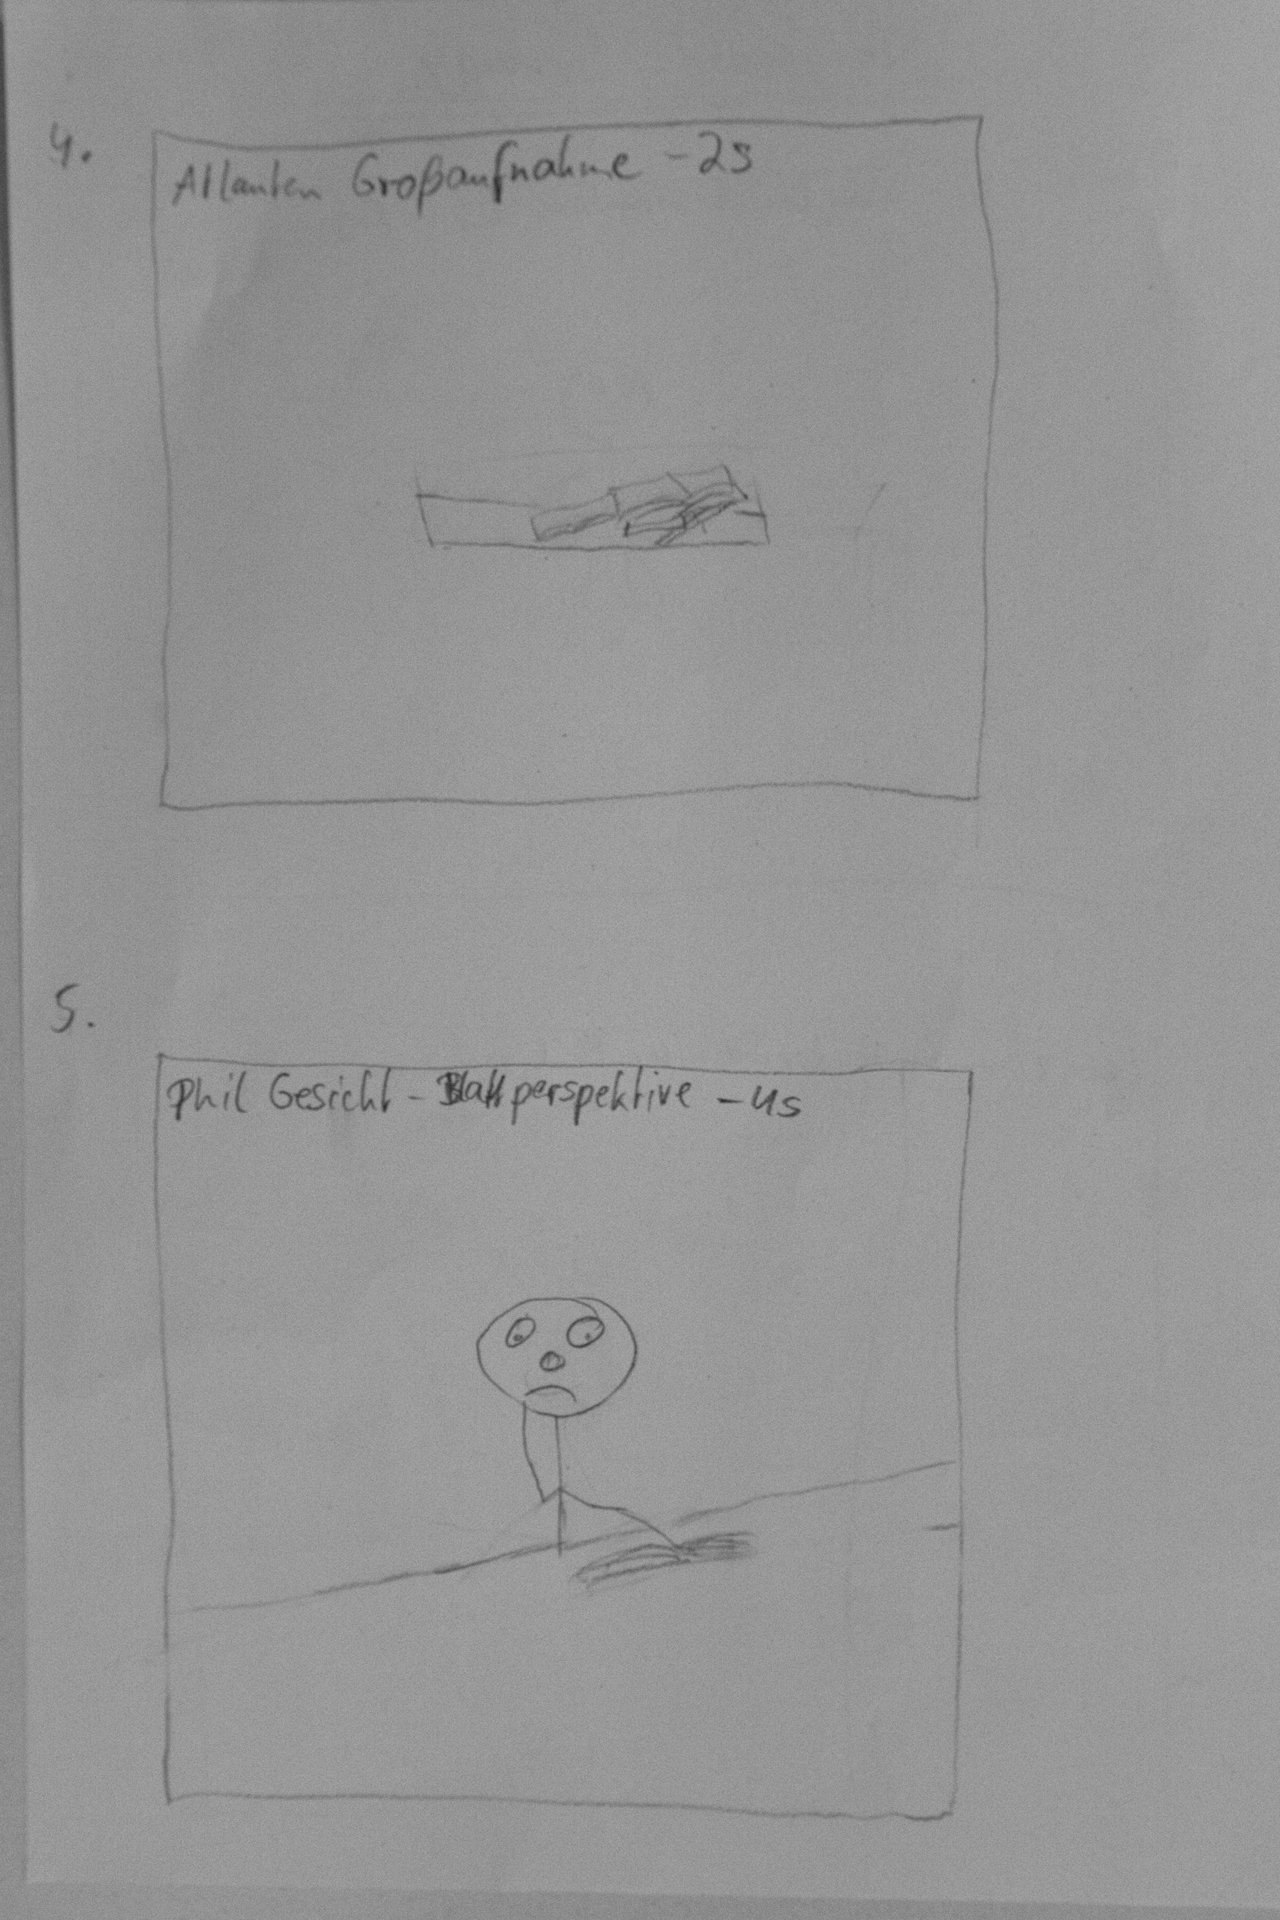 4.
Großaufnahme - 2s
5.
Phil Gesicht - Blattperspektive - 4s